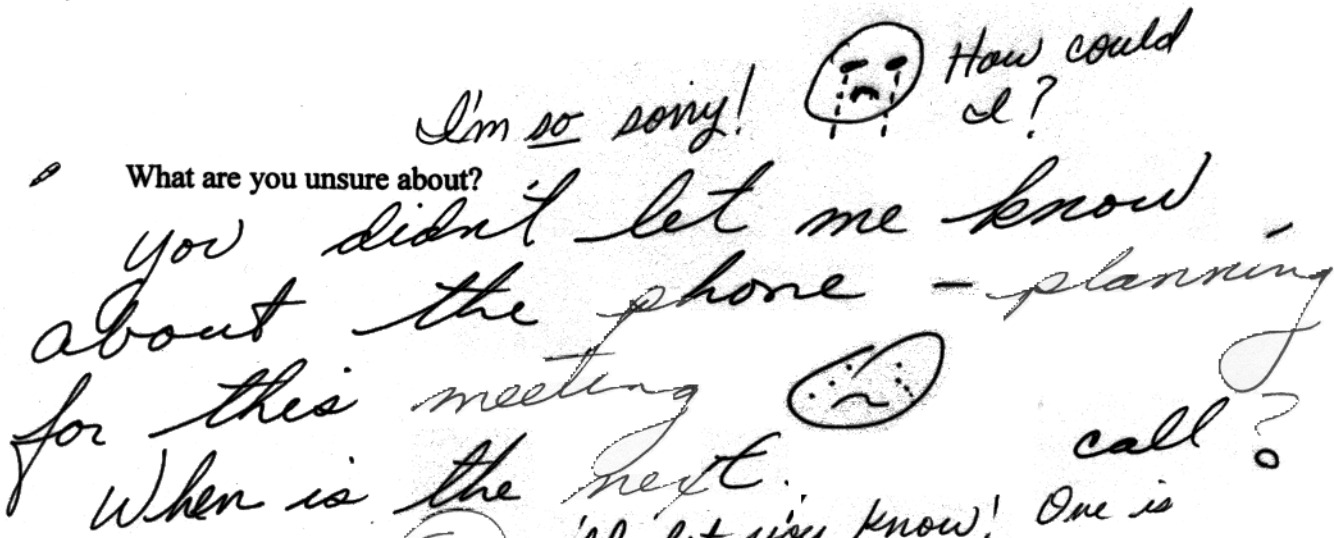 I'm so sorry! How could
I?
What are you unsure about?
you didn't let me know
about the phone - planning
for this meeting
When is the next call?
let you know! One is